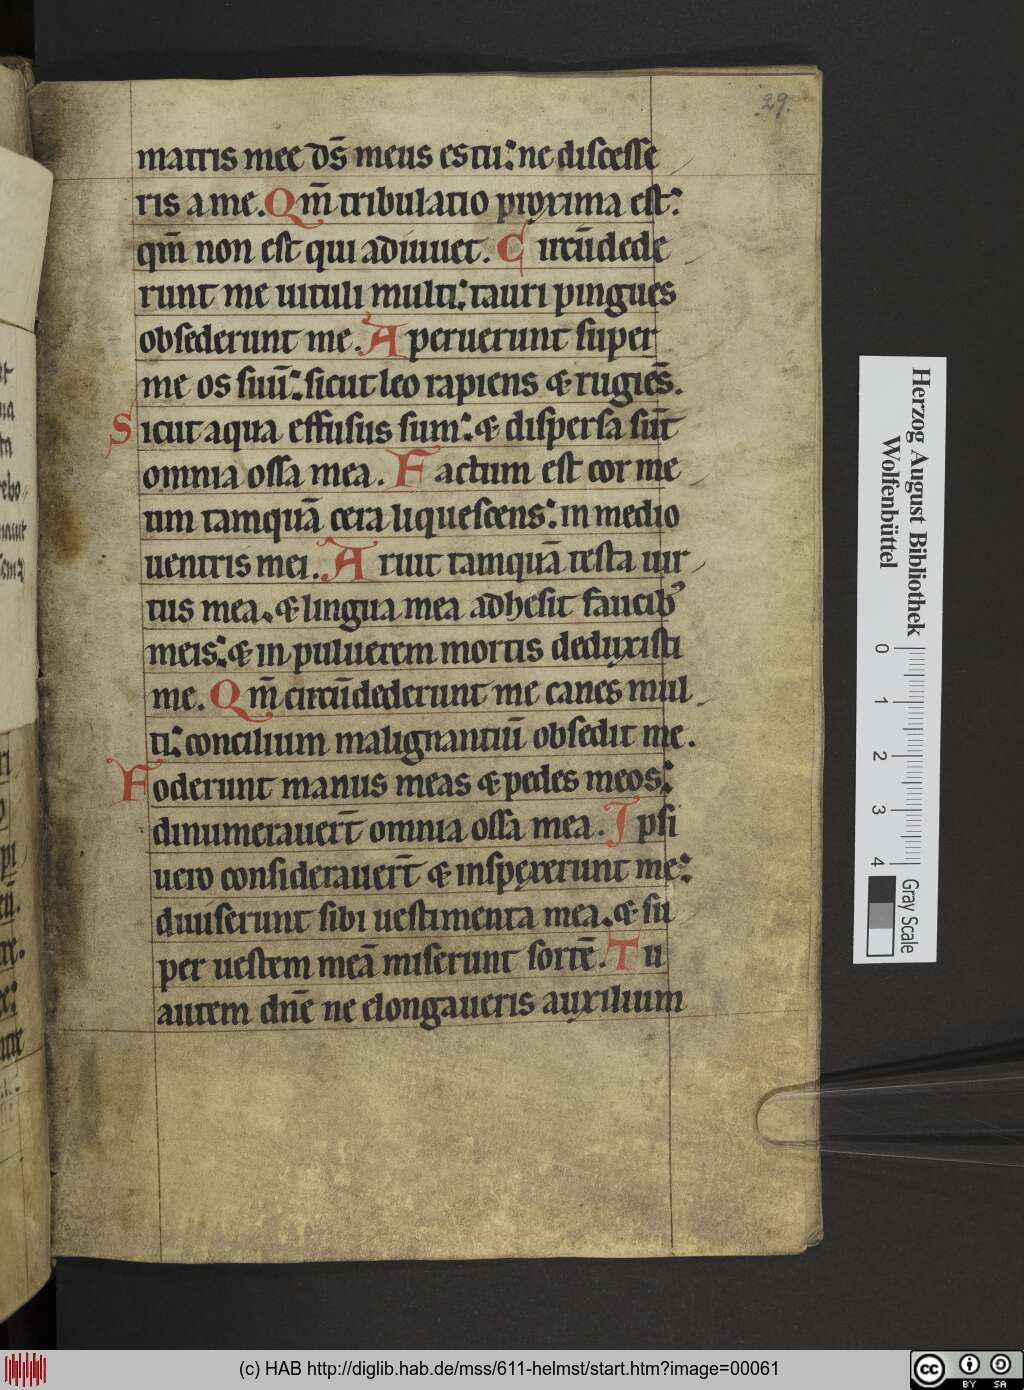 29.
matris mee ds̄ meus es tu: ne discesse
ris a me. Qm̄ tribulatio proxima est:
qm̄ non est qui adiuuet. Circū dede
runt me uituli multi: tauri pingues
obsederunt me. Aperuerunt super
me os suū: sicut leo rapiens & rugiēs.
Sicut aqua effusus sum: & dispersa sūt
omnia ossa mea. Factum est cor me
um tamquā cera liquescens: in medio
uentris mei. Aruit tamquā testa uir
tus mea. & lingua mea adhesit faucibꝰ
meis: & in puluerem mortis deduxisti
me. Qm̄ circūdederunt me canes mul
ti: concilium malignantiū obsedit me.
Foderunt manus meas & pedes meos:
dinumerauerт̄ omnia ossa mea. Ipsi
uero considerauert̄ & inspexerunt me:
diuiserunt sibi uestimenta mea. & su
per uestem meā miserunt sortē. Tu
autem dn̄e ne elongaueris auxilium
Herzog August Bibliothek
Wolfenbüttel
0 1 2 3 4
Gray Scale
(c) HAB http://diglib.hab.de/mss/611-helmst/start.htm?image=00061
cc BY SA